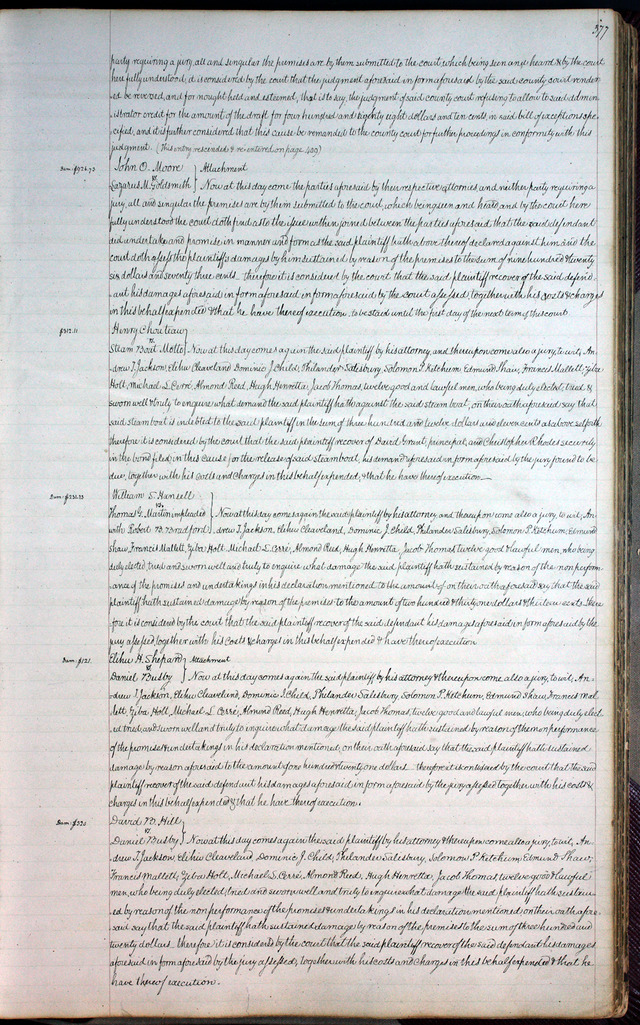 377
party requiring a jury, all and singular the premises are by them submitted to the court which being seen and heard & by the court
here fully understood, it is considered by the court that the judgment aforesaid in form aforesaid by the said county court render
ed be reversed, and for nought held and esteemed, that is to say, the judgment of said county court refusing to allow to said admin
istrator credit for the amount of the draft for four hundred and eighty eight dollars and ten cents, in said bill of exceptions spe
cified, and it is further considered that this cause be remanded to the county court for further proceedings in conformity with this
judgment. (This entry rescended & re-entered on page 409)
Dam: $926.73
John O. Moore } Attachment
vs
Lazarus M. Goldsmith } Now at this day come the parties aforesaid by their respective attornies and neither party requiring a
jury, all and singular the premises are by them submitted to the court, which being seen and heard, and by the court here
fully understood the court doth find as to the issue within joined between the parties aforesaid that the said defendant
did undertake and promise in manner and form as the said plaintiff hath above thereof declared against him and the
court doth assess the plaintiffs damages by him sustained by reason of the premises to the sum of nine hundred & twenty
six dollars and seventy three cents. therefore it is considered by the court that the said plaintiff recover of the said defend
ant his damages aforesaid in form aforesaid in form aforesaid by the court assessed, together with his costs & charges
in this behalf expended & that he have thereof execution. to be staid until the first day of the next term of this court
$312.11
Henry Chouteau
vs
Steam Boat Motto } Now at this day comes again the said plaintiff by his attorney, and thereupon come also a jury, to wit, An-
drew J. Jackson, Elihu Cleaveland, Dominic J. Child, Philander Salisbury, Solomon P. Ketchum, Edmund Shaw, Francis Mallett, Ziba
Holt, Michael S. Cerré, Almond Reed, Hugh Henretta, Jacob Thomas, twelve good and lawful men, who being duly elected, tried &
sworn well & truly to enquire what demand the said plaintiff hath against the said steam boat, on their oath aforesaid say that
said steamboat is indebted to the said plaintiff in the sum of three hundred and twelve dollars and eleven cents as above set forth
therefore it is considered by the court that the said plaintiff recover of David Grant, principal, and Christopher Rhodes security
in the bond filed, in this cause for the release of said Steamboat, his demand aforesaid in form aforesaid by the jury found to be
due, together with his costs and charges in this behalf expended, & that he have thereof execution.
Dam: $231.13
William S. Hansell
vs.
Thomas G. Martin impleaded } Now at this day comes again the said plaintiff by his attorney, and thereupon come also a jury, to wit, An-
with Robert B. Bradford } drew J. Jackson, Elihu Cleaveland, Dominic J. Child, Philander Salisbury, Solomon P. Ketchum, Edmund
Shaw, Francis Mallett, Ziba Holt, Michael S. Cerré, Almond Reed, Hugh Henretta, Jacob Thomas, twelve good & lawful men, who being
duly elected, tried and sworn well and truly to enquire what damage the said plaintiff hath sustained by reason of the non perform-
ance of the promises and undertakings in his declaration mentioned to the amount of on their oath aforesaid say that the said
plaintiff hath sustained damage by reason of the premises to the amount of two hundred & thirty one dollars & thirteen cents. there
fore it is considered by the court that the said plaintiff recover of the said defendant his damages aforesaid in form aforesaid by the
jury assessed together with his costs & charges in this behalf expended & have thereof execution
Dam: $121.
Elihu H. Shepard } Attachment
vs
Daniel Busby } Now at this day comes again the said plaintiff by his attorney & thereupon come also a jury to wit, An-
drew J. Jackson, Elihu Cleaveland, Dominic J. Child, Philander Salisbury, Solomon P. Ketchum, Edmund Shaw, Francis Mal-
lett, Ziba Holt, Michael S. Cerré, Almond Reed, Hugh Henretta, Jacob Thomas, twelve good and lawful men, who being duly elect-
ed tried, and sworn well and truly to enquire what damage the said plaintiff hath sustained by reason of the non performance
of the promises & undertakings in his declaration mentioned, on their oath aforesaid say that the said plaintiff hath sustained
damage by reason aforesaid to the amount of one hundred & twenty one dollars. therefore it is considered by the court that the said
plaintiff recover of the said defendant his damages aforesaid in form aforesaid by the jury assessed together with his costs &
charges in this behalf expended & that he have thereof execution.
Dam: $320.
David B. Hill
vs.
Daniel Busby } Now at this day comes again the said plaintiff by his attorney & thereupon come also a jury, to wit, An-
drew J. Jackson, Elihu Cleaveland, Dominic J. Child, Philander Salisbury, Solomon P. Ketchum, Edmund Shaw,
Francis Mallett, Ziba Holt, Michael S. Cerré, Almond Reed, Hugh Henretta, Jacob Thomas, twelve good & lawful
men, who being duly elected, tried and sworn well and truly to enquire what damage the said plaintiff hath sustain-
ed by reason of the non performance of the promises & undertakings in his declaration mentioned, on their oath afore-
said say that the said plaintiff hath sustained damages by reason of the premises to the sum of three hundred and
twenty dollars. therefore it is considered by the court that the said plaintiff recover of the said defendant his damages
aforesaid in form aforesaid by the jury assessed, together with his costs and charges in this behalf expended & that he
have thereof execution.